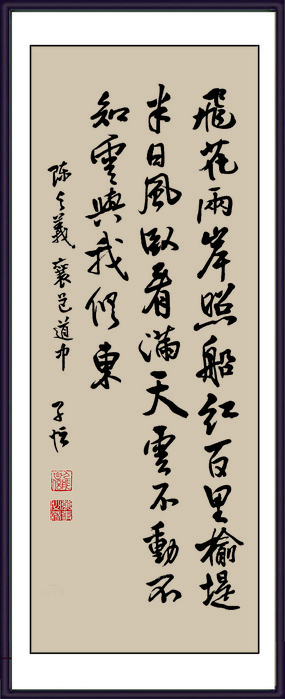 飛花兩岸照船紅百里榆堤
半日風臥看滿天雲不動不
知雲與我俱東
陳與義襄邑道中 子恒